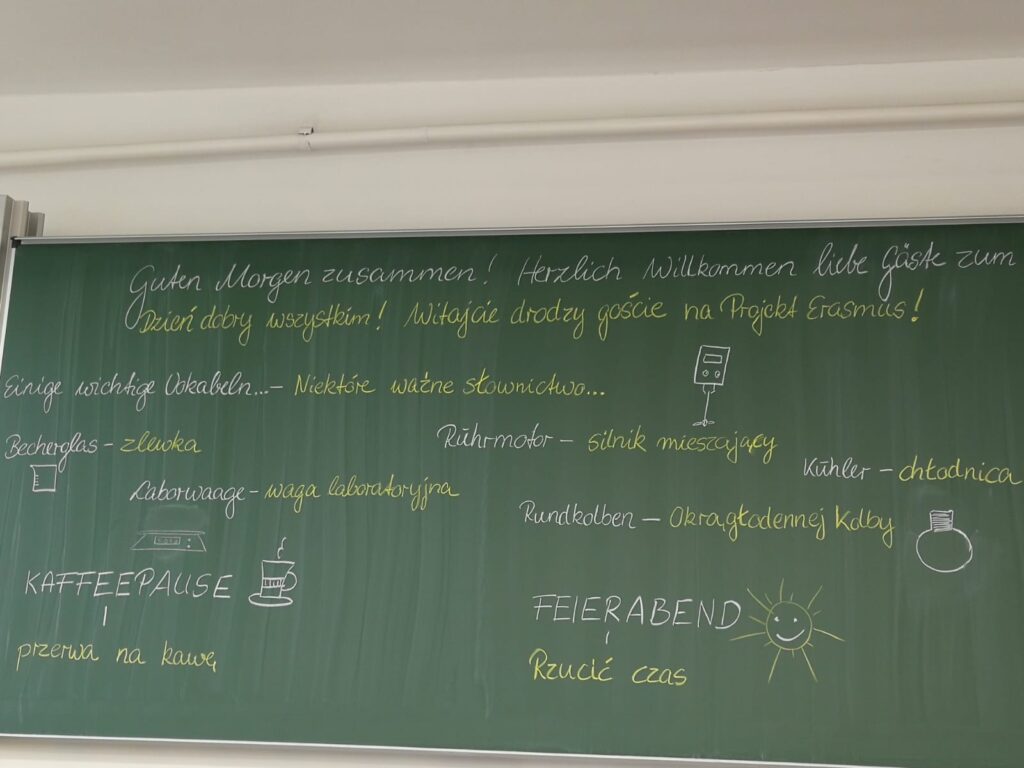 Guten Morgen zusammen! Herzlich Willkommen liebe Gäste zum
Dzień dobry wszystkim! Witajcie drodzy goście na Projekt Erasmus!
Einige wichtige Vokabeln...- Niektóre ważne słownictwo...
Becherglas - zlewka
Rührmotor - silnik mieszający
Kühler - chłodnica
Laborwaage - waga laboratoryjna
Rundkolben - Okrągłodennej Kolby
KAFFEEPAUSE
przerwa na kawę
FEIERABEND
Rzucić czas